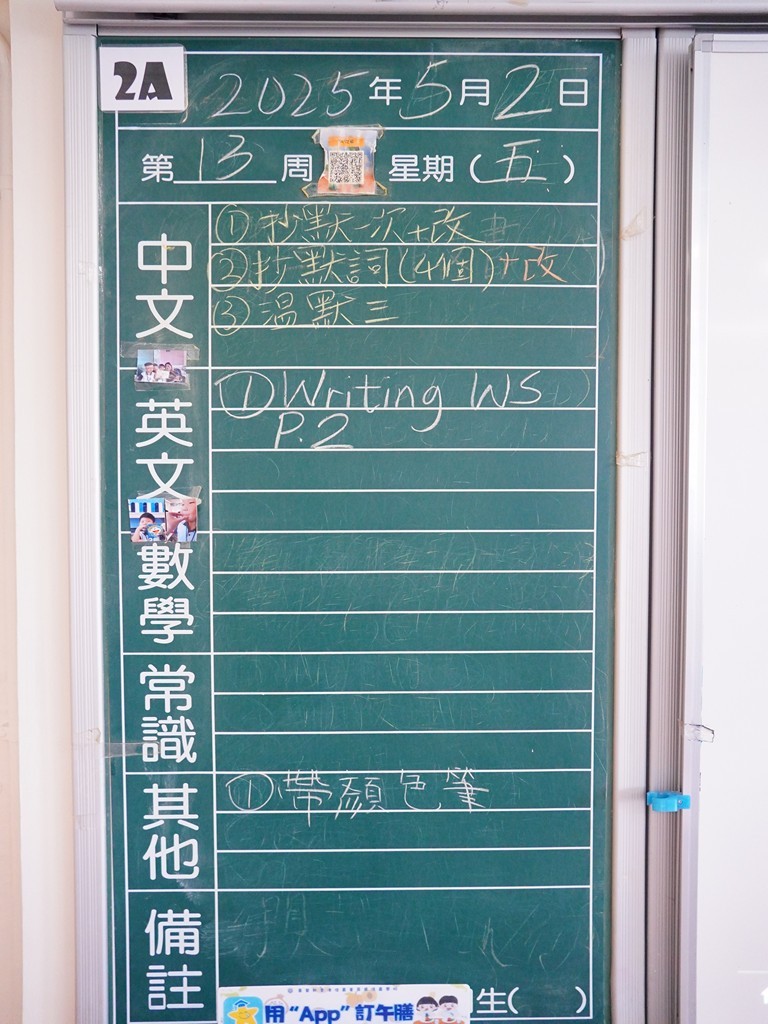 2A
2025年5月2日
第13周 星期(五)
中文
①抄默一次+改
②抄默詞(4個)+改
③溫默三
英文
①Writing WS
P.2
數學
常識
其他
①帶顏色筆
備註
用“App”訂午膳
生( )